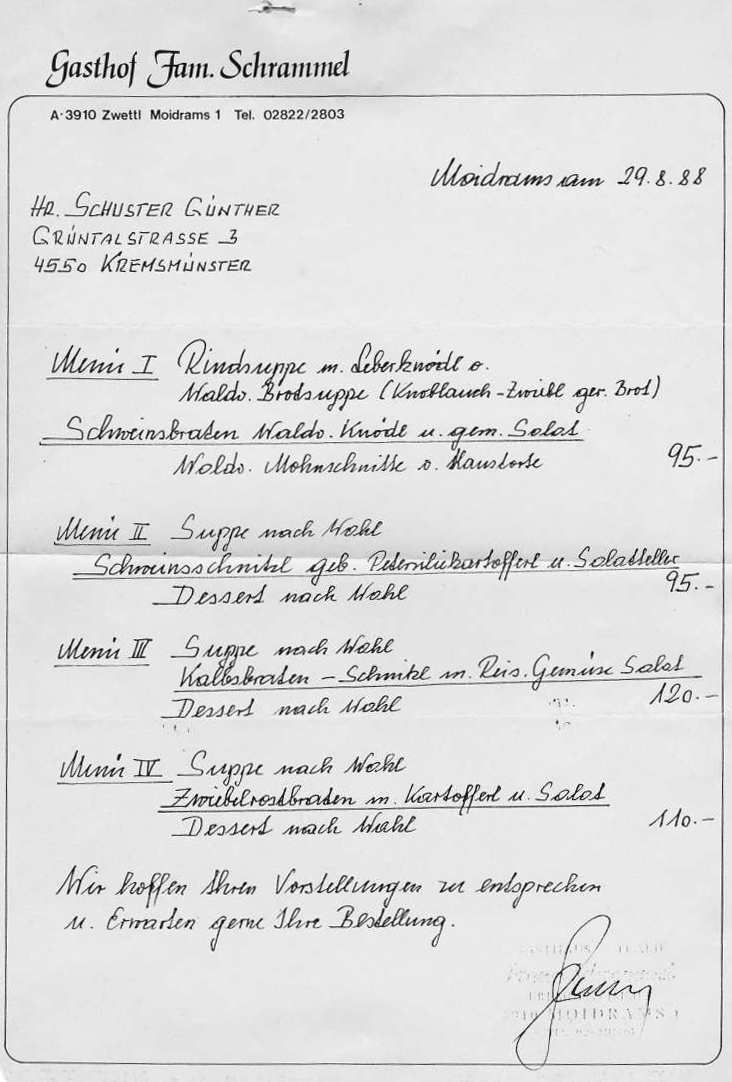 Gasthof Fam. Schrammel
A-3910 Zwettl Moidrams 1 Tel. 02822/2803
Moidrams am 29.8.88
HR. SCHUSTER GÜNTHER
GRÜNTALSTRASSE 3
4550 KREMSMÜNSTER
Menü I Rindsuppe m. Leberknödl o.
Waldv. Brotsuppe (Knoblauch-Zwiebl ger. Brot)
Schweinsbraten Waldv. Knödl u. gem. Salat
Waldv. Mohnschnitte o. Haustorte 95.-
Menü II Suppe nach Wahl
Schweinsschnitzl geb. Petersiliekartofferl u. Salatteller
Dessert nach Wahl 95.-
Menü III Suppe nach Wahl
Kalbsbraten - Schnitzl m. Reis. Gemüse Salat
Dessert nach Wahl 120.-
Menü IV Suppe nach Wahl
Zwiebelrostbraten m. Kartofferl u. Salat
Dessert nach Wahl 110.-
Wir hoffen Ihren Vorstellungen zu entsprechen
u. Erwarten gerne Ihre Bestellung.
MOIDRAMS 1